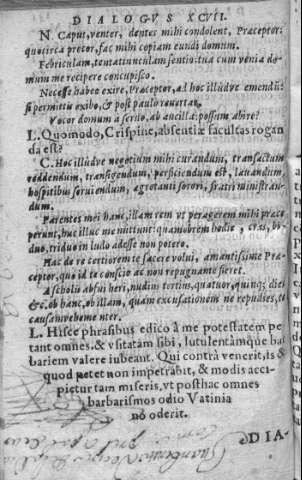 DIALOGVS XCVII.
N. Caput, venter, dentes mihi condolent, Præceptor:
quocirca precor, fac mihi copiam eundi domum.
Febriculam, tentatiunculam sentio: tua cum venia do-
mum me recipere concupisco.
Necesse habeo exire, Præceptor, ad hoc illúdve emendũ:
si permittis exibo, & post paulo reuertar.
Vocor domum a seruo, ab ancilla: possum abire?
L. Quomodo, Crispine, absentiæ facultas rogan
da est?
C. Hoc illúdve negotium mihi curandum, transactum
reddendum, transigendum, perficiendum est, lauandum,
hospitibus seruiendum, ægrotanti sorori, fratri ministran-
dum.
Parentes mei hanc, illam rem vt peragerem mihi præce
perunt, huc illuc me mittunt: quamobrem hodie, cras, bi-
duo, triduo in ludo adesse non potero.
Hac de re certiorem te facere volui, amantissime Præ-
ceptor, quo id te conscio ac non repugnante fieret.
A scholis abfui heri, nudius tertius, quatuor, quinq; dies
& ob hanc, ob illam, quam excusationem ne repudies, te
causam vehementer
L. Hisce phrasibus edico à me potestatem pe
tant omnes, & vsitatam sibi, lutulentámque bar
bariem valere iubeant. Qui contrà venerit, is &
quod petet non impetrabit, & modis acci-
pietur tam miseris, vt posthac omnes
barbarismos odio Vatinia
nõ oderit.
DIA-